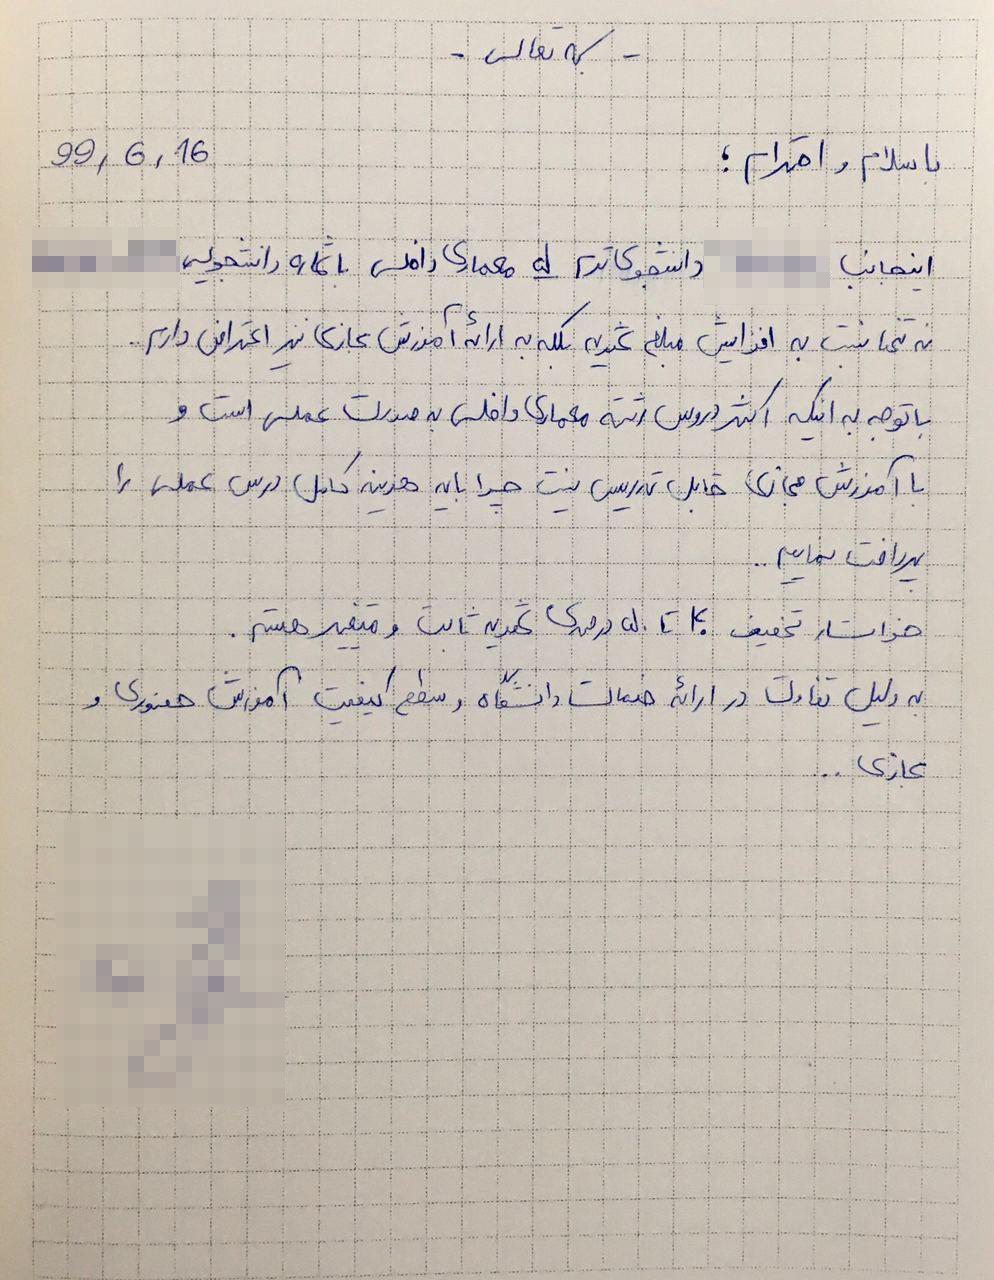 - بسمه تعالی -
با سلام و احترام ؛
99, 6, 16
اینجانب دانشجوی ترم ۵ معماری داخلی با شماره دانشجویی
نه تنها نسبت به افزایش مبلغ شهریه بلکه به ارائه آموزش مجازی نیز اعتراض دارم..
با توجه به اینکه اکثر دروس رشته معماری داخلی به صورت عملی است و
با آموزش مجازی قابل تدریس نیست چرا باید هزینه کامل درس عملی را
پرداخت نماییم..
خواستار تخفیف ۴۰ تا ۵۰ درصدی شهریه ثابت و متغیر هستم.
به دلیل تفاوت در ارائه خدمات دانشگاه و سطح کیفیت آموزش حضوری و
مجازی ..